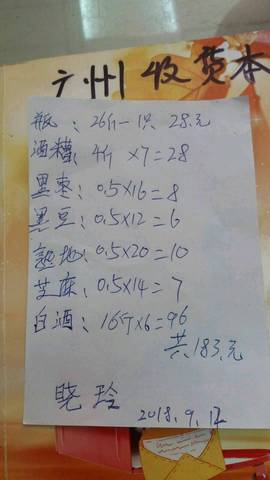 广州收货本
瓶：26斤一只 28元
酒糟：4斤×7=28
黑枣：0.5×16=8
黑豆：0.5×12=6
熟地：0.5×20=10
芝麻：0.5×14=7
白酒：16斤×6=96
共183元
晓玲
2018.9.12